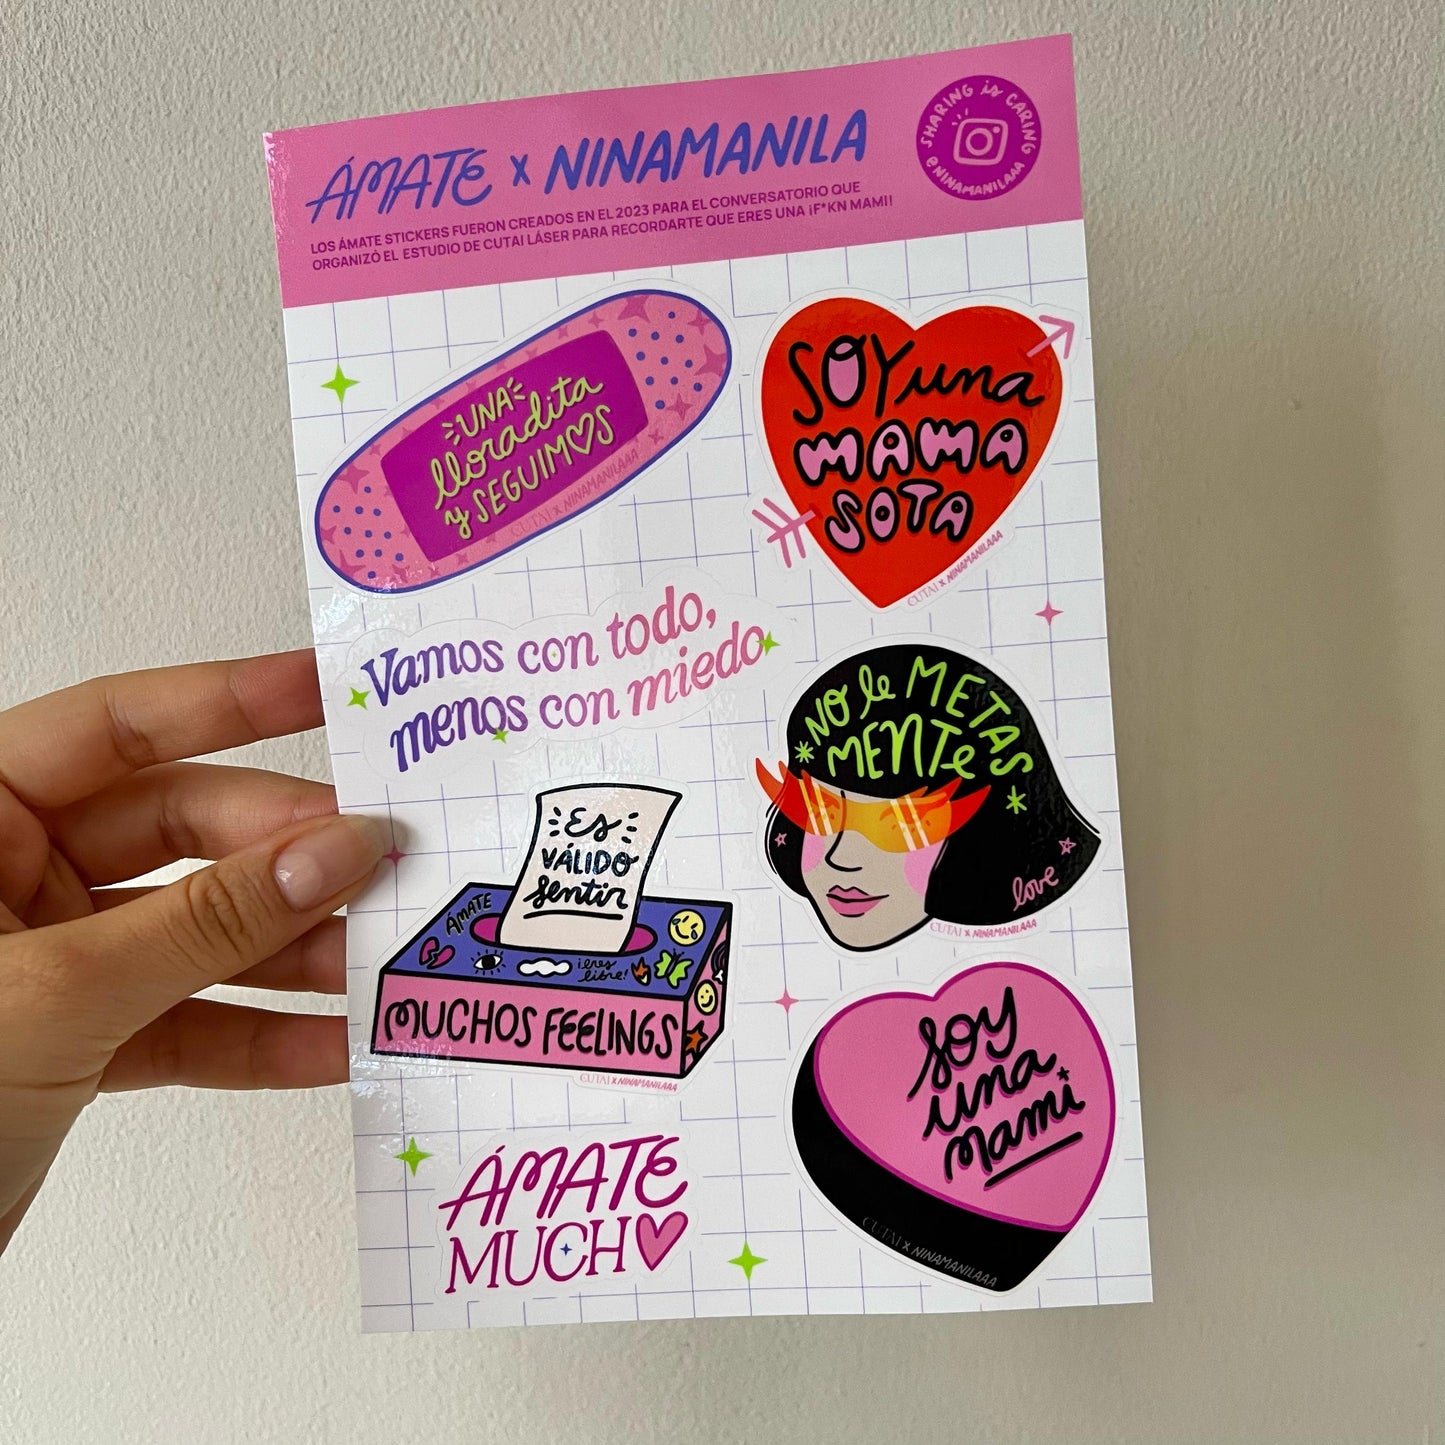 ÁMATE x NINAMANILA
LOS ÁMATE STICKERS FUERON CREADOS EN EL 2023 PARA EL CONVERSATORIO QUE
ORGANIZÓ EL ESTUDIO DE CUTAI LÁSER PARA RECORDARTE QUE ERES UNA ¡F*KN MAMI!
SHARING is CARING
@NINAMANILAAA
UNA
lloradita
y SEGUIMOS
CUTAI x NINAMANILAAA
SOY una
MAMA
SOTA
CUTAI x NINAMANILAAA
Vamos con todo,
menos con miedo
NO le METAS
MENTE
love
CUTAI x NINAMANILAAA
Es
VÁLIDO
sentir
ÁMATE
¡eres
libre!
MUCHOS FEELINGS
CUTAI x NINAMANILAAA
SOY
una
mami
CUTAI x NINAMANILAAA
ÁMATE
MUCHO